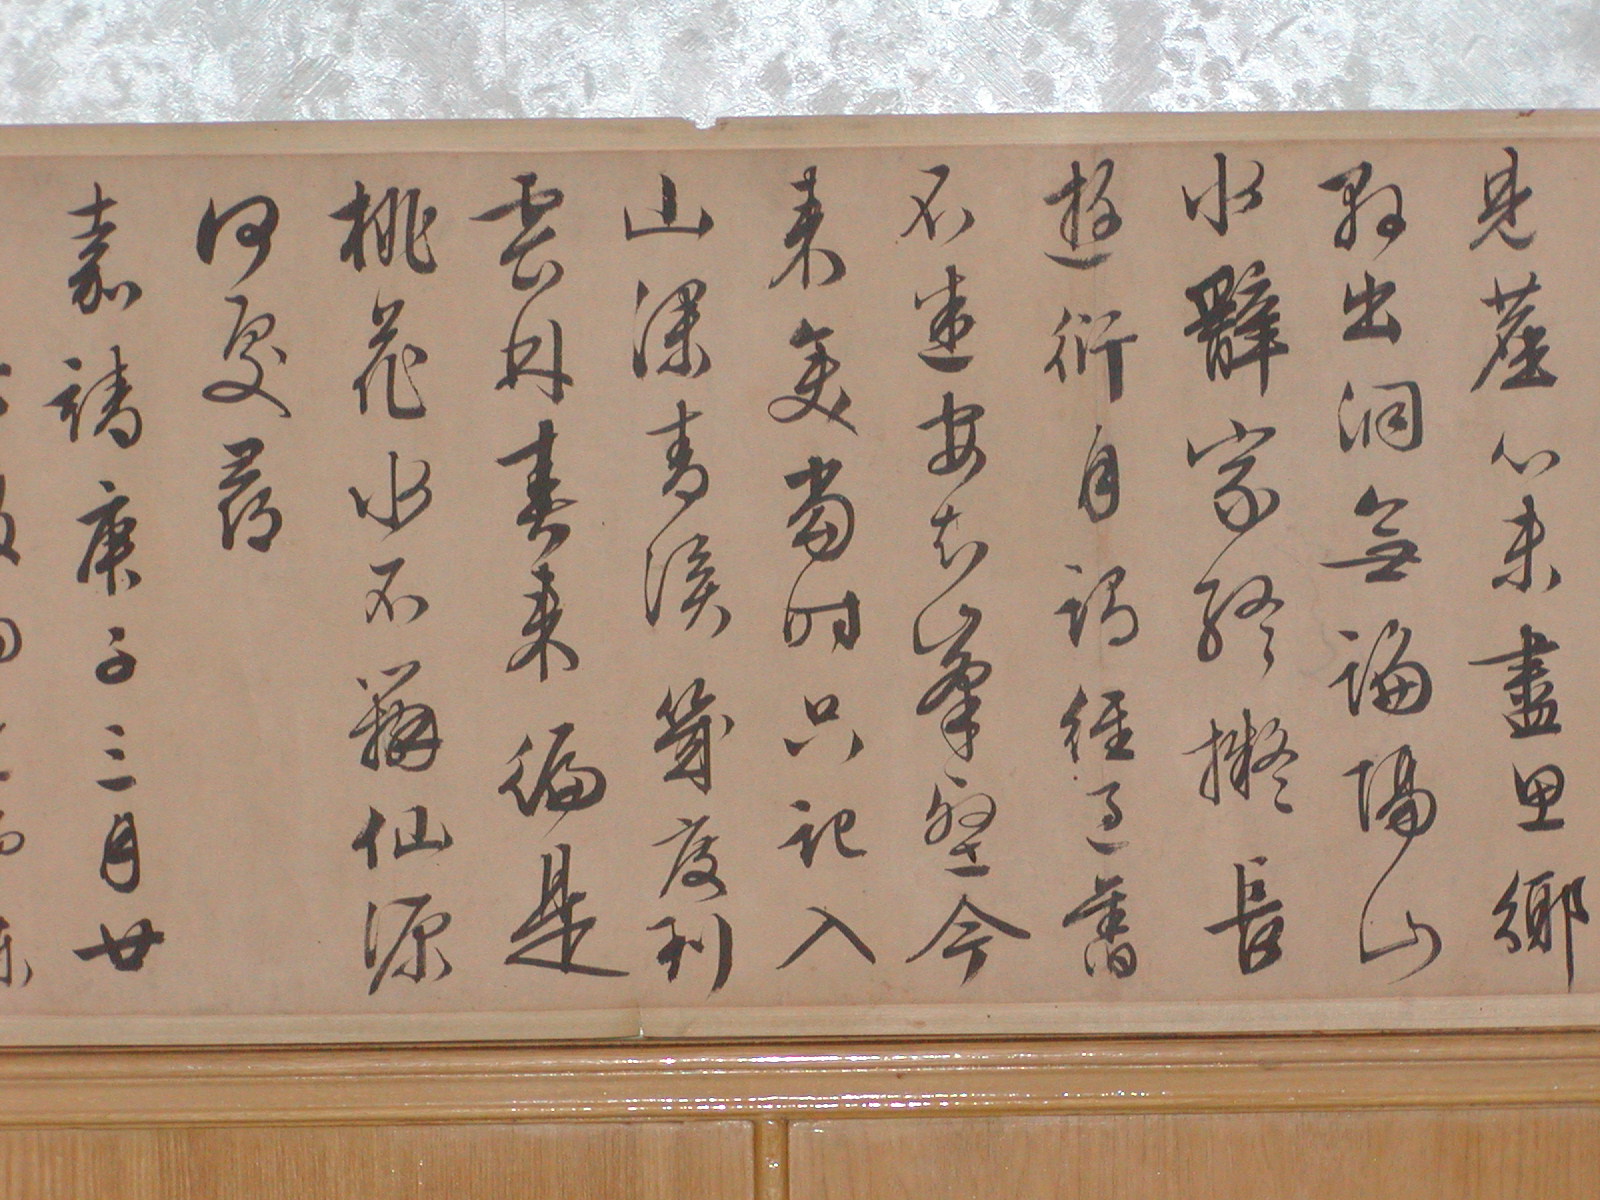 見塵心未盡思鄉
縣出洞無論隔山
水辭家終擬長
遊衍自謂經過舊
不迷安知峯壑今
來變當時只記入
山深青溪幾度到
雲林春來遍是
桃花水不辨仙源
何處尋
嘉靖庚子三月廿